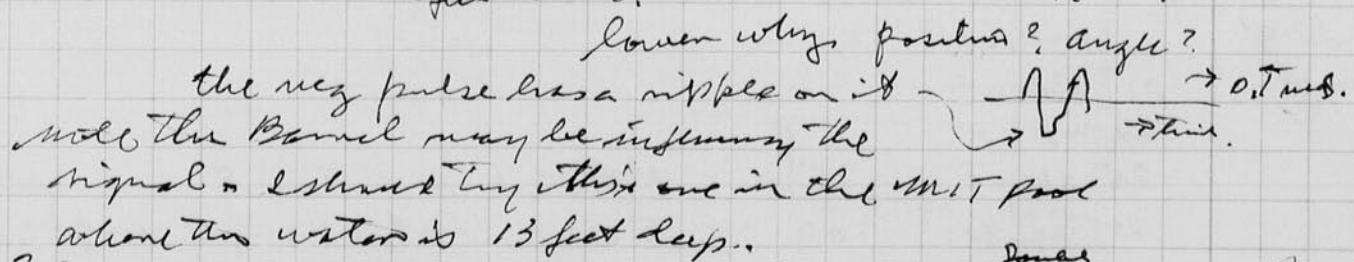 lower why, position? angle?
the neg pulse has a ripple on it → 0.1 ms.
note the Barrel may be influencing the → time.
signal. I should try this one in the MIT pool
where the water is 13 feet deep..